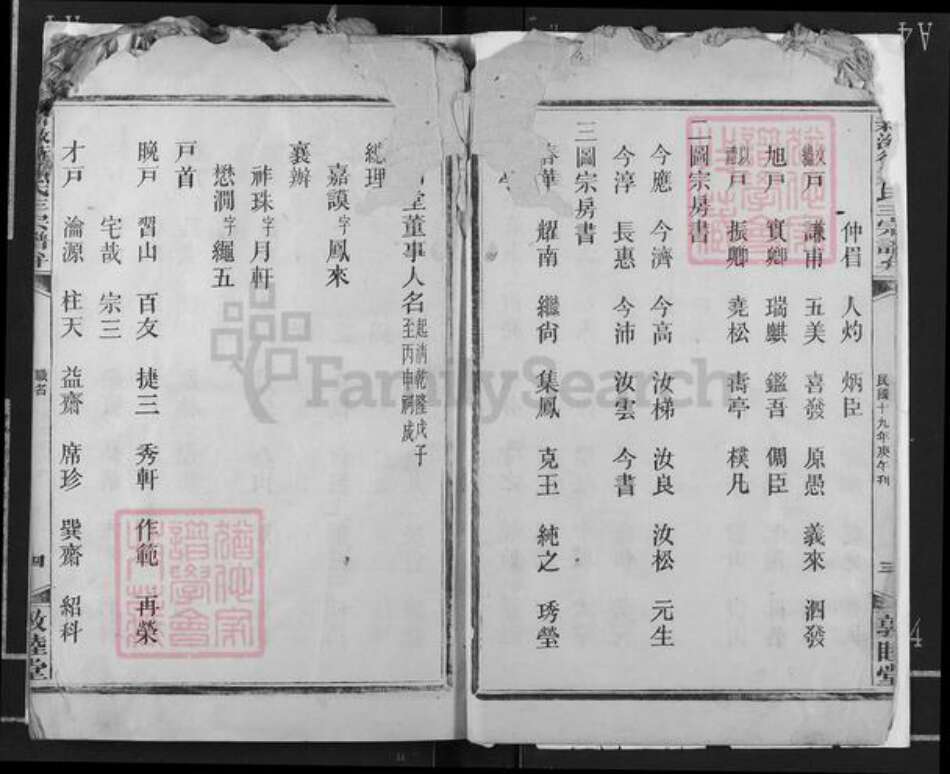 仲眉 人灼 炳臣
戶 謙甫 五美 喜發 原愚 義來 泗發
旭戶 賓卿 瑞麒 鑑吾 倜臣
戶 振卿 堯松 壽亭 樸凡
二圖宗房書
今應 今濟 今高 汝梯 汝良 汝松 元生
今淳 長惠 今沛 汝雲 今書
三圖宗房書
春華 耀南 繼尙 集鳳 克王 純之 琇瑩
民國十九年庚午刊
三
敦睦堂
堂董事人名起淸乾隆戊子至丙申嗣成
總理
嘉謨字鳳來
襄辦
祚珠字月軒
懋澗字繩五
戶首
晚戶 習山 百友 捷三 秀軒 作範 再榮
宅哉 宗三
才戶 瀹源 柱天 益齋 席珍 巽齋 紹科
職名
四
敦睦堂
FamilySearch